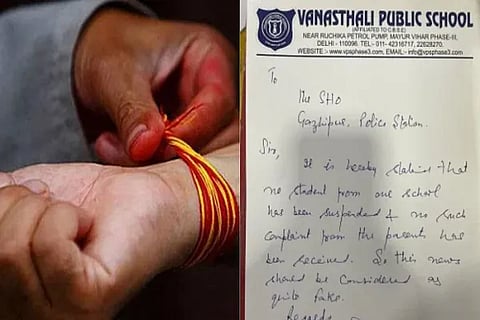 VANASTHALI PUBLIC SCHOOL
(AFFILIATED TO C.B.S.E)
NEAR RUCHIKA PETROL PUMP, MAYUR VIHAR PHASE-III,
DELHI - 110096. TEL:- 011- 42316717, 22628270.
WEBSITE:- www.vpsphase3.com, EMAIL:-info@vpsphase3.com
To
The SHO
Gazhipur, Police Station.
Sir,
It is hereby stating that
no student from our school
has been suspended & no such
complaint from the parents has
been received. So this news
should be considered as
quite fake.
Regards